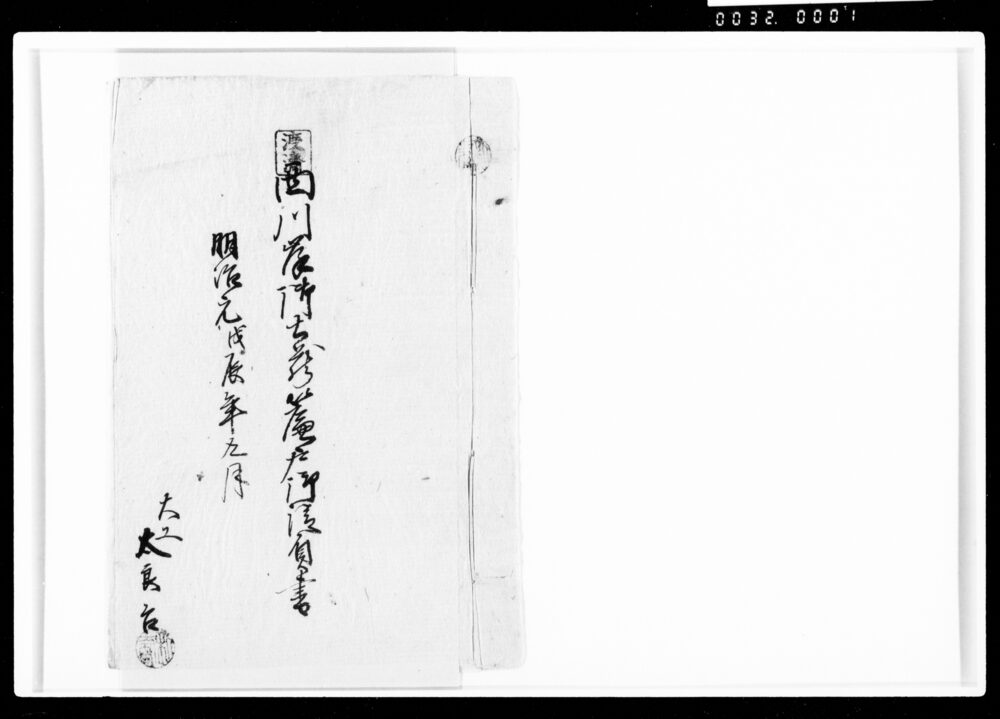 0032. 0001
渡邊
西川岸御土蔵簾戸御請負書
明治元戊辰年九月
大工
太良吉